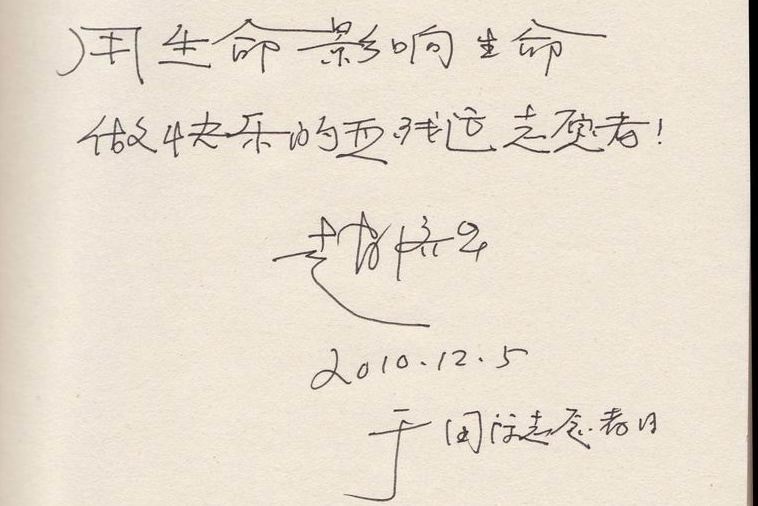 用生命影响生命
做快乐的亚残运志愿者!
2010.12.5
于国际志愿者日